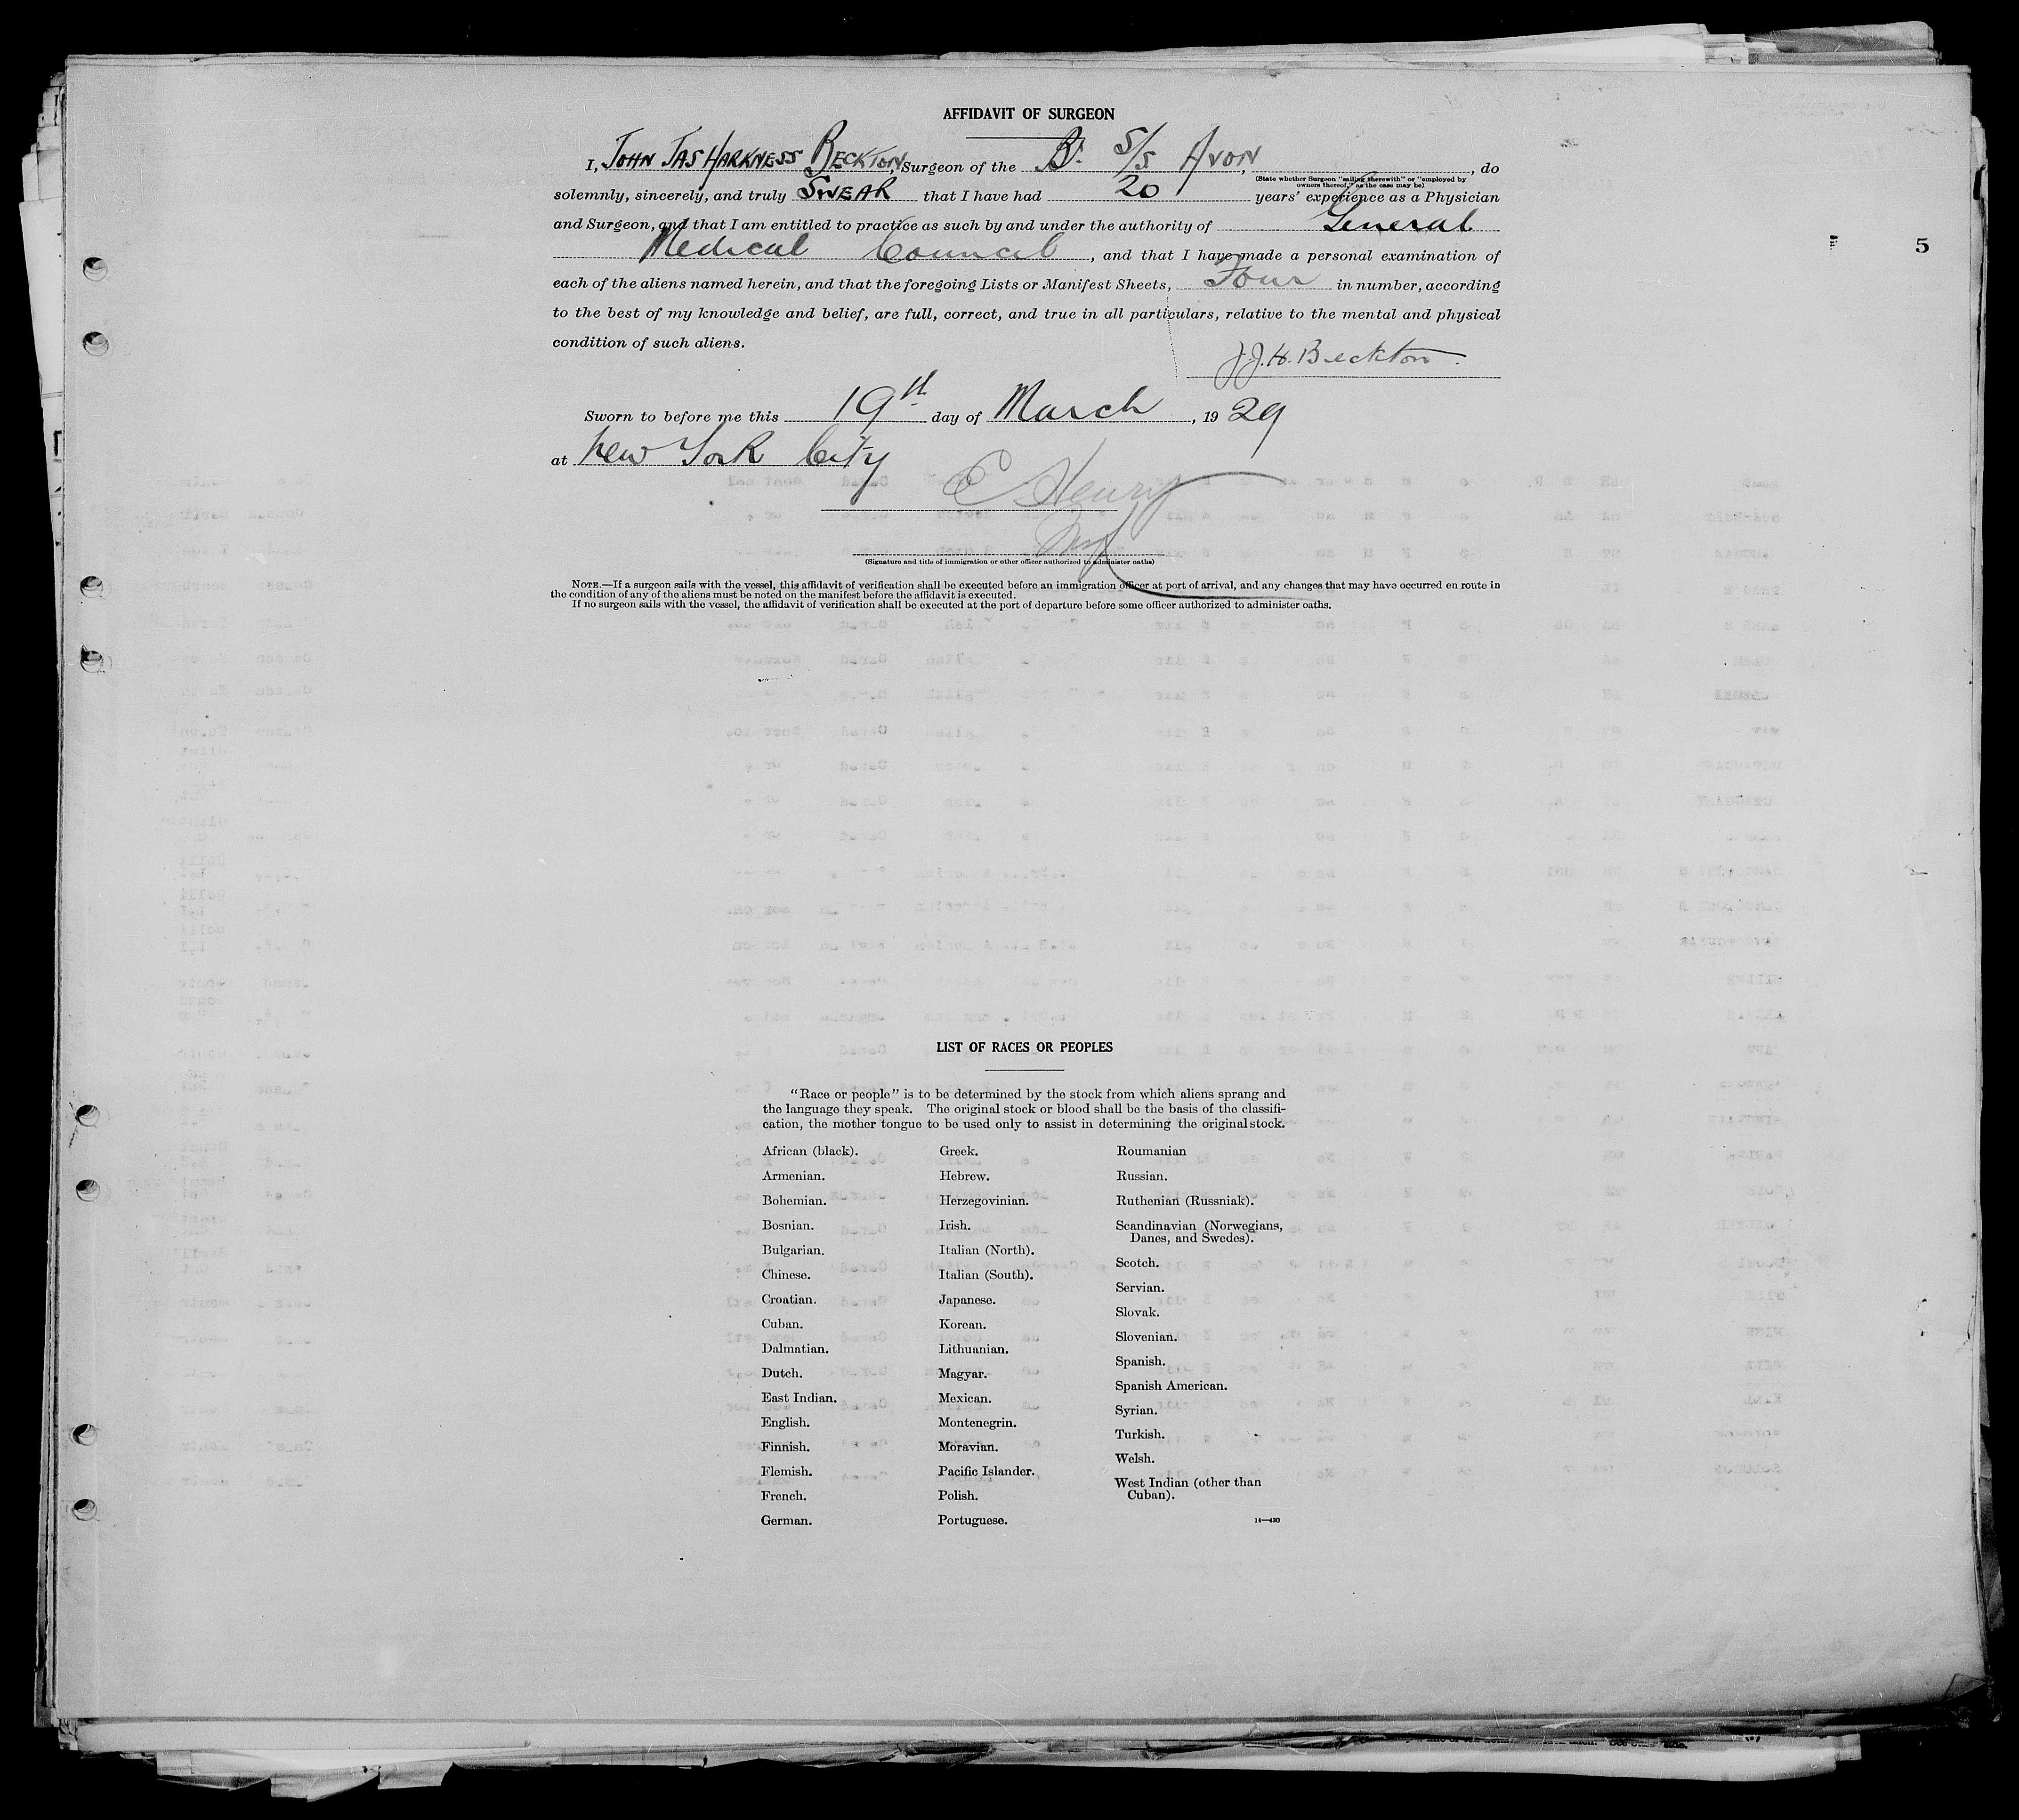 AFFIDAVIT OF SURGEON
I, JOHN JAS HARKNESS BECKTON, Surgeon of the Br. S/S AVON, , do
(State whether Surgeon "sailing therewith" or "employed by
owners thereof," as the case may be)
solemnly, sincerely, and truly SWEAR that I have had 20 years' experience as a Physician
and Surgeon, and that I am entitled to practice as such by and under the authority of General
Medical Council, and that I have made a personal examination of
each of the aliens named herein, and that the foregoing Lists or Manifest Sheets, Four in number, according
to the best of my knowledge and belief, are full, correct, and true in all particulars, relative to the mental and physical
condition of such aliens.
J.J.H. Beckton.
Sworn to before me this 19th day of March, 1929
at New York City
E Henry
(Signature and title of immigration or other officer authorized to administer oaths)
NOTE.—If a surgeon sails with the vessel, this affidavit of verification shall be executed before an immigration officer at port of arrival, and any changes that may have occurred en route in
the condition of any of the aliens must be noted on the manifest before the affidavit is executed.
If no surgeon sails with the vessel, the affidavit of verification shall be executed at the port of departure before some officer authorized to administer oaths.
5
LIST OF RACES OR PEOPLES
"Race or people" is to be determined by the stock from which aliens sprang and
the language they speak. The original stock or blood shall be the basis of the classifi-
cation, the mother tongue to be used only to assist in determining the original stock.
African (black).
Armenian.
Bohemian.
Bosnian.
Bulgarian.
Chinese.
Croatian.
Cuban.
Dalmatian.
Dutch.
East Indian.
English.
Finnish.
Flemish.
French.
German.
Greek.
Hebrew.
Herzegovinian.
Irish.
Italian (North).
Italian (South).
Japanese.
Korean.
Lithuanian.
Magyar.
Mexican.
Montenegrin.
Moravian.
Pacific Islander.
Polish.
Portuguese.
Roumanian
Russian.
Ruthenian (Russniak).
Scandinavian (Norwegians,
Danes, and Swedes).
Scotch.
Servian.
Slovak.
Slovenian.
Spanish.
Spanish American.
Syrian.
Turkish.
Welsh.
West Indian (other than
Cuban).
14—430